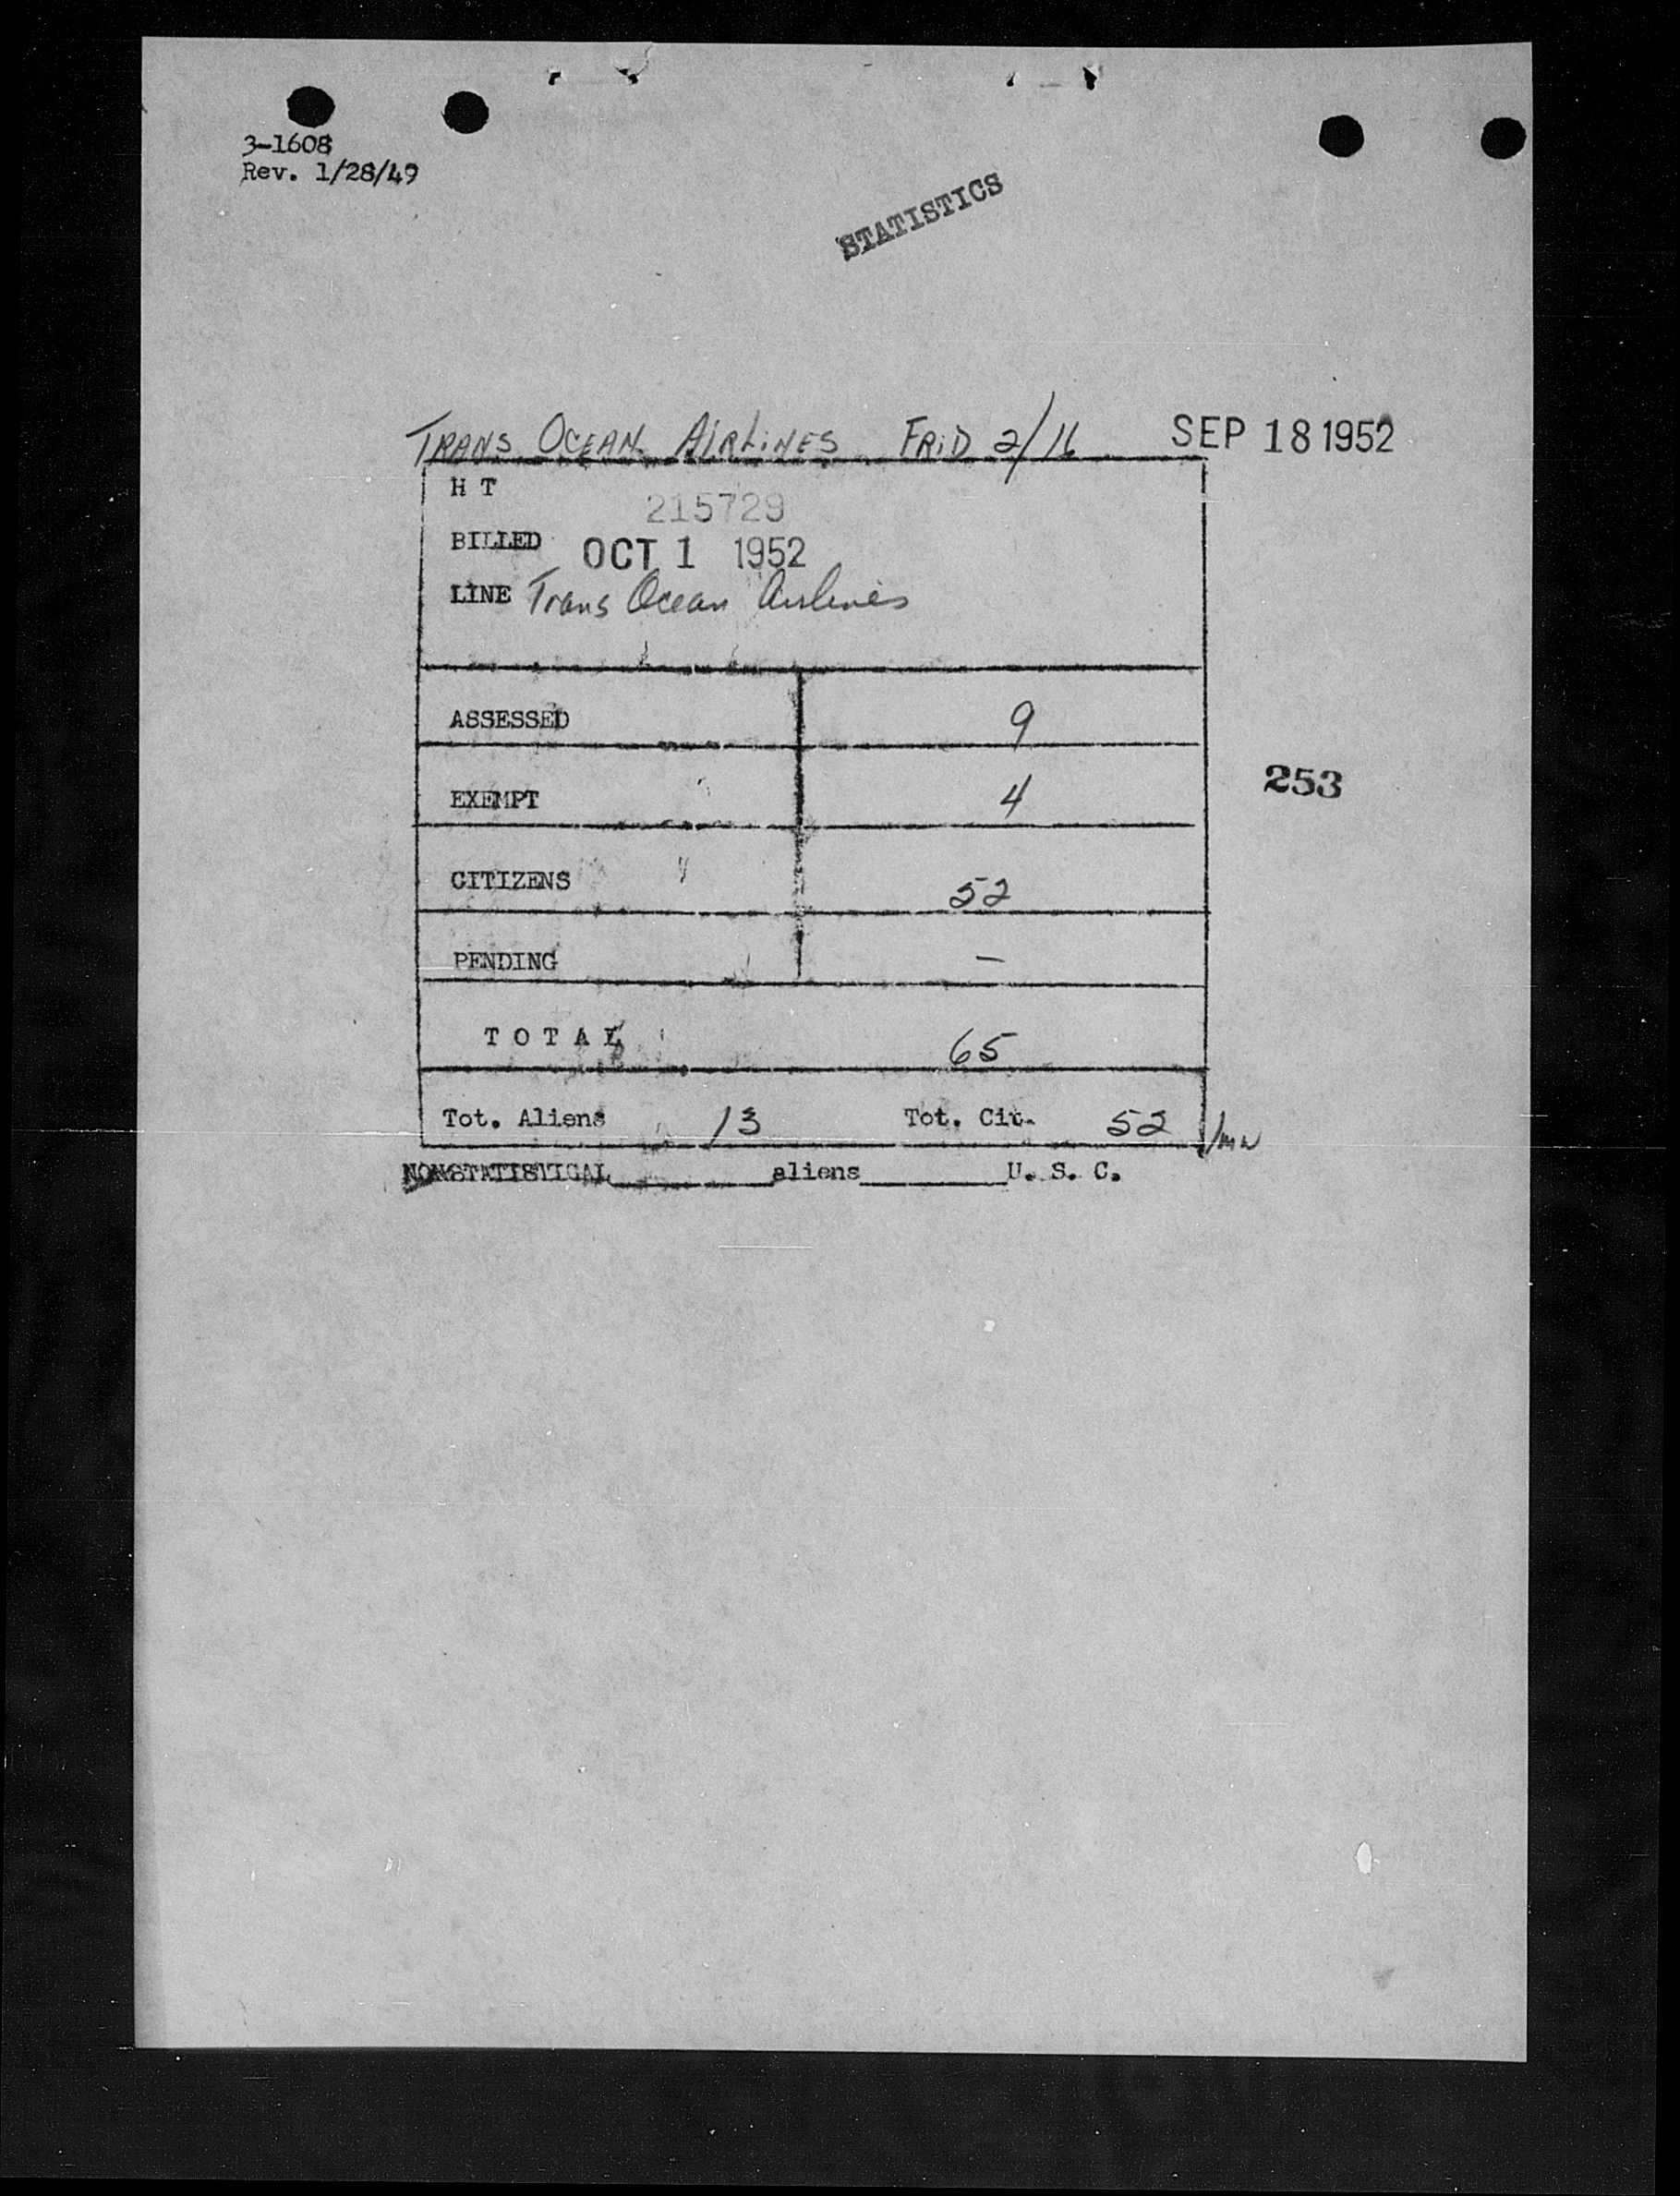 3-1608
Rev. 1/28/49
STATISTICS
TRANS OCEAN AIRLINES FRID 2/16 SEP 18 1952
H T
215729
BILLED OCT 1 1952
LINE Trans Ocean Airlines
ASSESSED 9
EXEMPT 4
253
CITIZENS 52
PENDING –
TOTAL 65
Tot. Aliens 13 Tot. Cit. 52
NONSTATISTICAL aliens U. S. C.